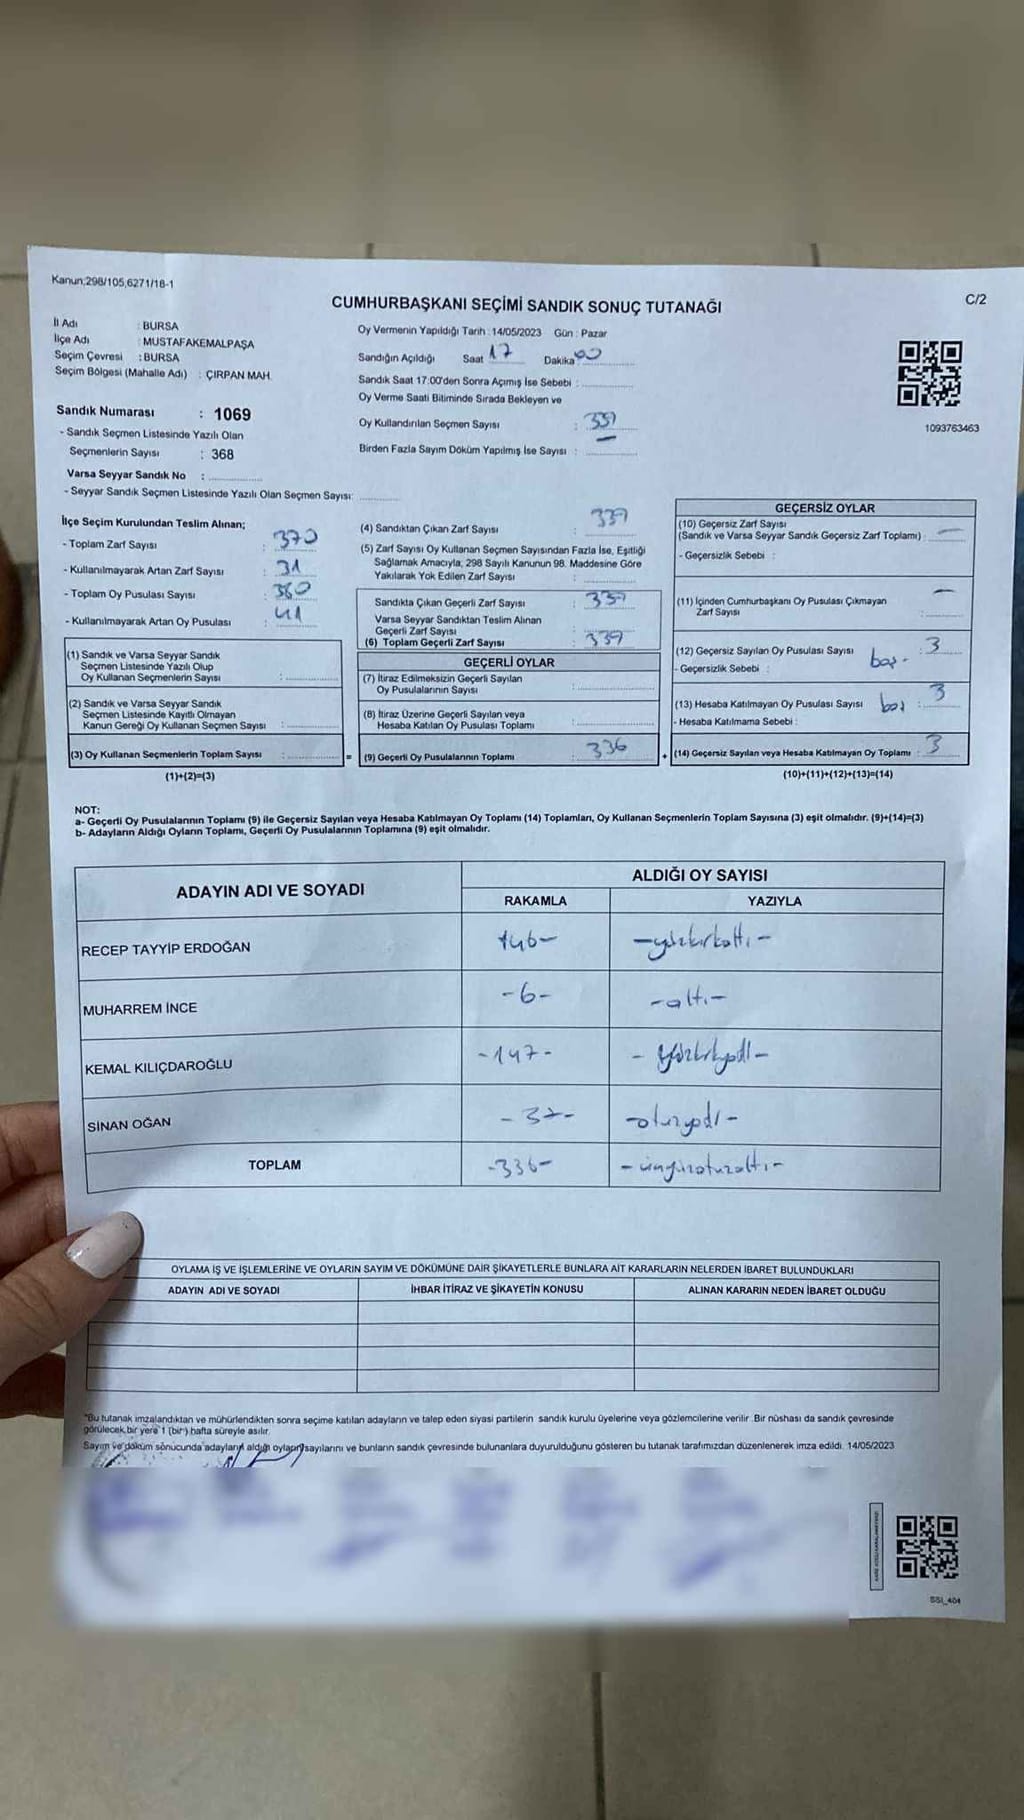 Kanun;298/105,6271/18-1
CUMHURBAŞKANI SEÇİMİ SANDIK SONUÇ TUTANAĞI
C/2
İl Adı : BURSA
İlçe Adı : MUSTAFAKEMALPAŞA
Seçim Çevresi : BURSA
Seçim Bölgesi (Mahalle Adı) : ÇIRPAN MAH.
Sandık Numarası : 1069
- Sandık Seçmen Listesinde Yazılı Olan
Seçmenlerin Sayısı : 368
Varsa Seyyar Sandık No :
- Seyyar Sandık Seçmen Listesinde Yazılı Olan Seçmen Sayısı:
Oy Vermenin Yapıldığı Tarih : 14/05/2023 Gün : Pazar
Sandığın Açıldığı Saat 17 Dakika 00
Sandık Saat 17:00'den Sonra Açımış İse Sebebi :
Oy Verme Saati Bitiminde Sırada Bekleyen ve
Oy Kullandırılan Seçmen Sayısı : 339
Birden Fazla Sayım Döküm Yapılmış İse Sayısı :
1093763463
İlçe Seçim Kurulundan Teslim Alınan;
- Toplam Zarf Sayısı : 370
- Kullanılmayarak Artan Zarf Sayısı : 31
- Toplam Oy Pusulası Sayısı : 380
- Kullanılmayarak Artan Oy Pusulası : 41
(1) Sandık ve Varsa Seyyar Sandık
Seçmen Listesinde Yazılı Olup
Oy Kullanan Seçmenlerin Sayısı :
(2) Sandık ve Varsa Seyyar Sandık
Seçmen Listesinde Kayıtlı Olmayan
Kanun Gereği Oy Kullanan Seçmen Sayısı :
(3) Oy Kullanan Seçmenlerin Toplam Sayısı :
(1)+(2)=(3)
(4) Sandıktan Çıkan Zarf Sayısı : 339
(5) Zarf Sayısı Oy Kullanan Seçmen Sayısından Fazla İse, Eşitliği
Sağlamak Amacıyla, 298 Sayılı Kanunun 98. Maddesine Göre
Yakılarak Yok Edilen Zarf Sayısı :
Sandıkta Çıkan Geçerli Zarf Sayısı : 339
Varsa Seyyar Sandıktan Teslim Alınan
Geçerli Zarf Sayısı
(6) Toplam Geçerli Zarf Sayısı : 339
GEÇERLİ OYLAR
(7) İtiraz Edilmeksizin Geçerli Sayılan
Oy Pusulalarının Sayısı :
(8) İtiraz Üzerine Geçerli Sayılan veya
Hesaba Katılan Oy Pusulası Toplamı :
= (9) Geçerli Oy Pusulalarının Toplamı : 336
GEÇERSİZ OYLAR
(10) Geçersiz Zarf Sayısı
(Sandık ve Varsa Seyyar Sandık Geçersiz Zarf Toplamı) : —
- Geçersizlik Sebebi :
(11) İçinden Cumhurbaşkanı Oy Pusulası Çıkmayan
Zarf Sayısı : —
(12) Geçersiz Sayılan Oy Pusulası Sayısı : 3
- Geçersizlik Sebebi : boş-
(13) Hesaba Katılmayan Oy Pusulası Sayısı : 3
- Hesaba Katılmama Sebebi : boş
+ (14) Geçersiz Sayılan veya Hesaba Katılmayan Oy Toplamı : 3
(10)+(11)+(12)+(13)=(14)
NOT:
a- Geçerli Oy Pusulalarının Toplamı (9) ile Geçersiz Sayılan veya Hesaba Katılmayan Oy Toplamı (14) Toplamları, Oy Kullanan Seçmenlerin Toplam Sayısına (3) eşit olmalıdır. (9)+(14)=(3)
b- Adayların Aldığı Oyların Toplamı, Geçerli Oy Pusulalarının Toplamına (9) eşit olmalıdır.
ADAYIN ADI VE SOYADI
ALDIĞI OY SAYISI
RAKAMLA YAZIYLA
RECEP TAYYİP ERDOĞAN 146- -yüzkırkaltı-
MUHARREM İNCE -6- -altı-
KEMAL KILIÇDAROĞLU -147- -yüzkırkyedi-
SİNAN OĞAN -37- -otuzyedi-
TOPLAM -336- -üçyüzotuzaltı-
OYLAMA İŞ VE İŞLEMLERİNE VE OYLARIN SAYIM VE DÖKÜMÜNE DAİR ŞİKAYETLERLE BUNLARA AİT KARARLARIN NELERDEN İBARET BULUNDUKLARI
ADAYIN ADI VE SOYADI İHBAR İTİRAZ VE ŞİKAYETİN KONUSU ALINAN KARARIN NEDEN İBARET OLDUĞU
*Bu tutanak imzalandıktan ve mühürlendikten sonra seçime katılan adayların ve talep eden siyasi partilerin sandık kurulu üyelerine veya gözlemcilerine verilir. Bir nüshası da sandık çevresinde
görülecek bir yere 1 (bir) hafta süreyle asılır.
Sayım ve döküm sonucunda adayların aldığı oyların sayılarını ve bunların sandık çevresinde bulunanlara duyurulduğunu gösteren bu tutanak tarafımızdan düzenlenerek imza edildi. 14/05/2023
SSI_404